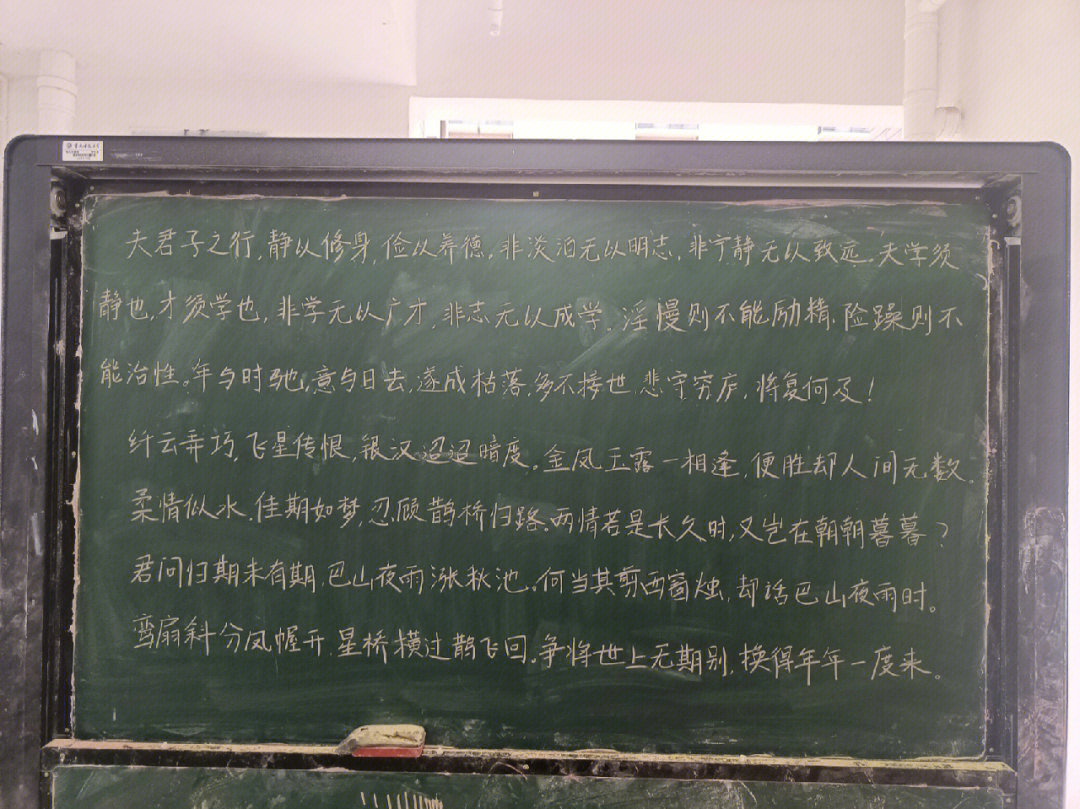 夫君子之行,静以修身,俭以养德。非淡泊无以明志,非宁静无以致远。夫学须
静也,才须学也,非学无以广才,非志无以成学。淫慢则不能励精,险躁则不
能治性。年与时驰,意与日去,遂成枯落,多不接世,悲守穷庐,将复何及!
纤云弄巧,飞星传恨,银汉迢迢暗度。金凤玉露一相逢,便胜却人间无数。
柔情似水,佳期如梦,忍顾鹊桥归路。两情若是长久时,又岂在朝朝暮暮?
君问归期未有期,巴山夜雨涨秋池。何当共剪西窗烛,却话巴山夜雨时。
鸾扇斜分凤幄开,星桥横过鹊飞回。争将世上无期别,换得年年一度来。